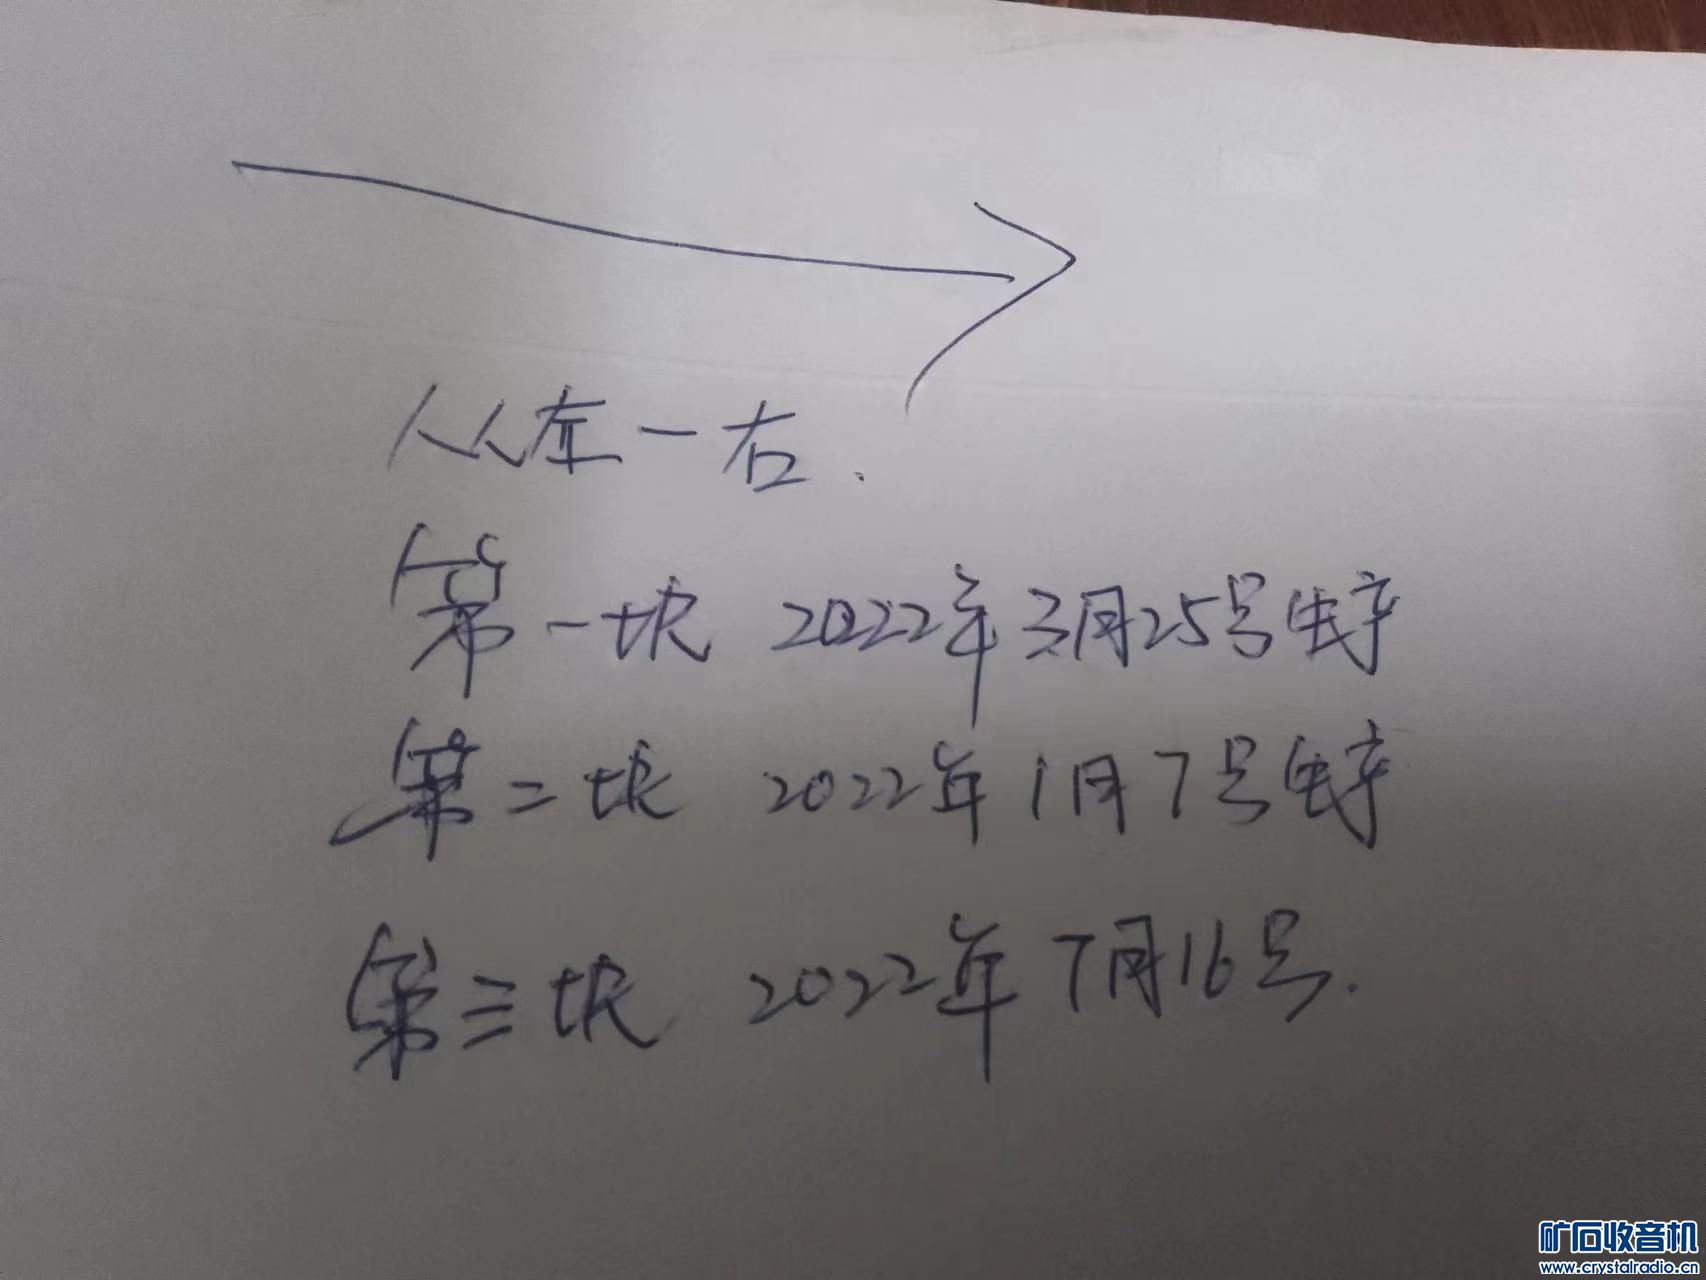 从左一右.
第一块 2022年3月25号
第二块 2022年1月7号
第三块 2022年7月16号.
矿石收音机
www.crystalradio.cn